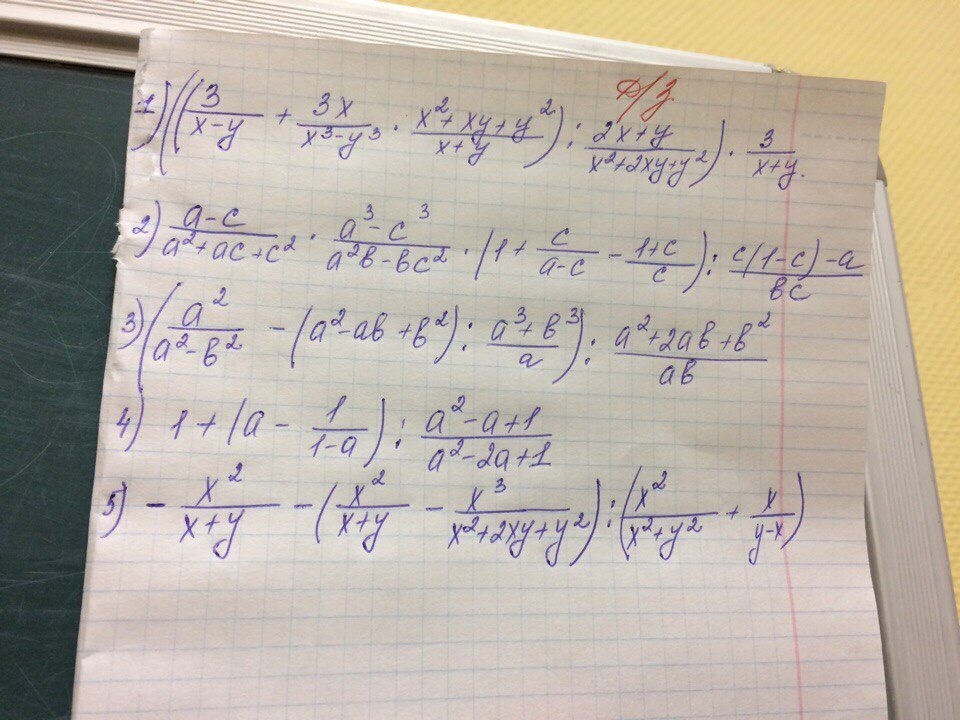 Д/З
1) ((3/(x-y) + 3x/(x³-y³) · (x²+xy+y²)/(x+y)) : (2x+y)/(x²+2xy+y²)) · 3/(x+y).
2) (a-c)/(a²+ac+c²) · (a³-c³)/(a²b-bc²) · (1 + c/(a-c) - (1+c)/c) : (c(1-c)-a)/(bc)
3) (a²/(a²-b²) - (a²-ab+b²) : (a³+b³)/a) : (a²+2ab+b²)/(ab)
4) 1 + (a - 1/(1-a)) : (a²-a+1)/(a²-2a+1)
5) - x²/(x+y) - (x²/(x+y) - x³/(x²+2xy+y²)) : (x²/(x²+y²) + x/(y-x))